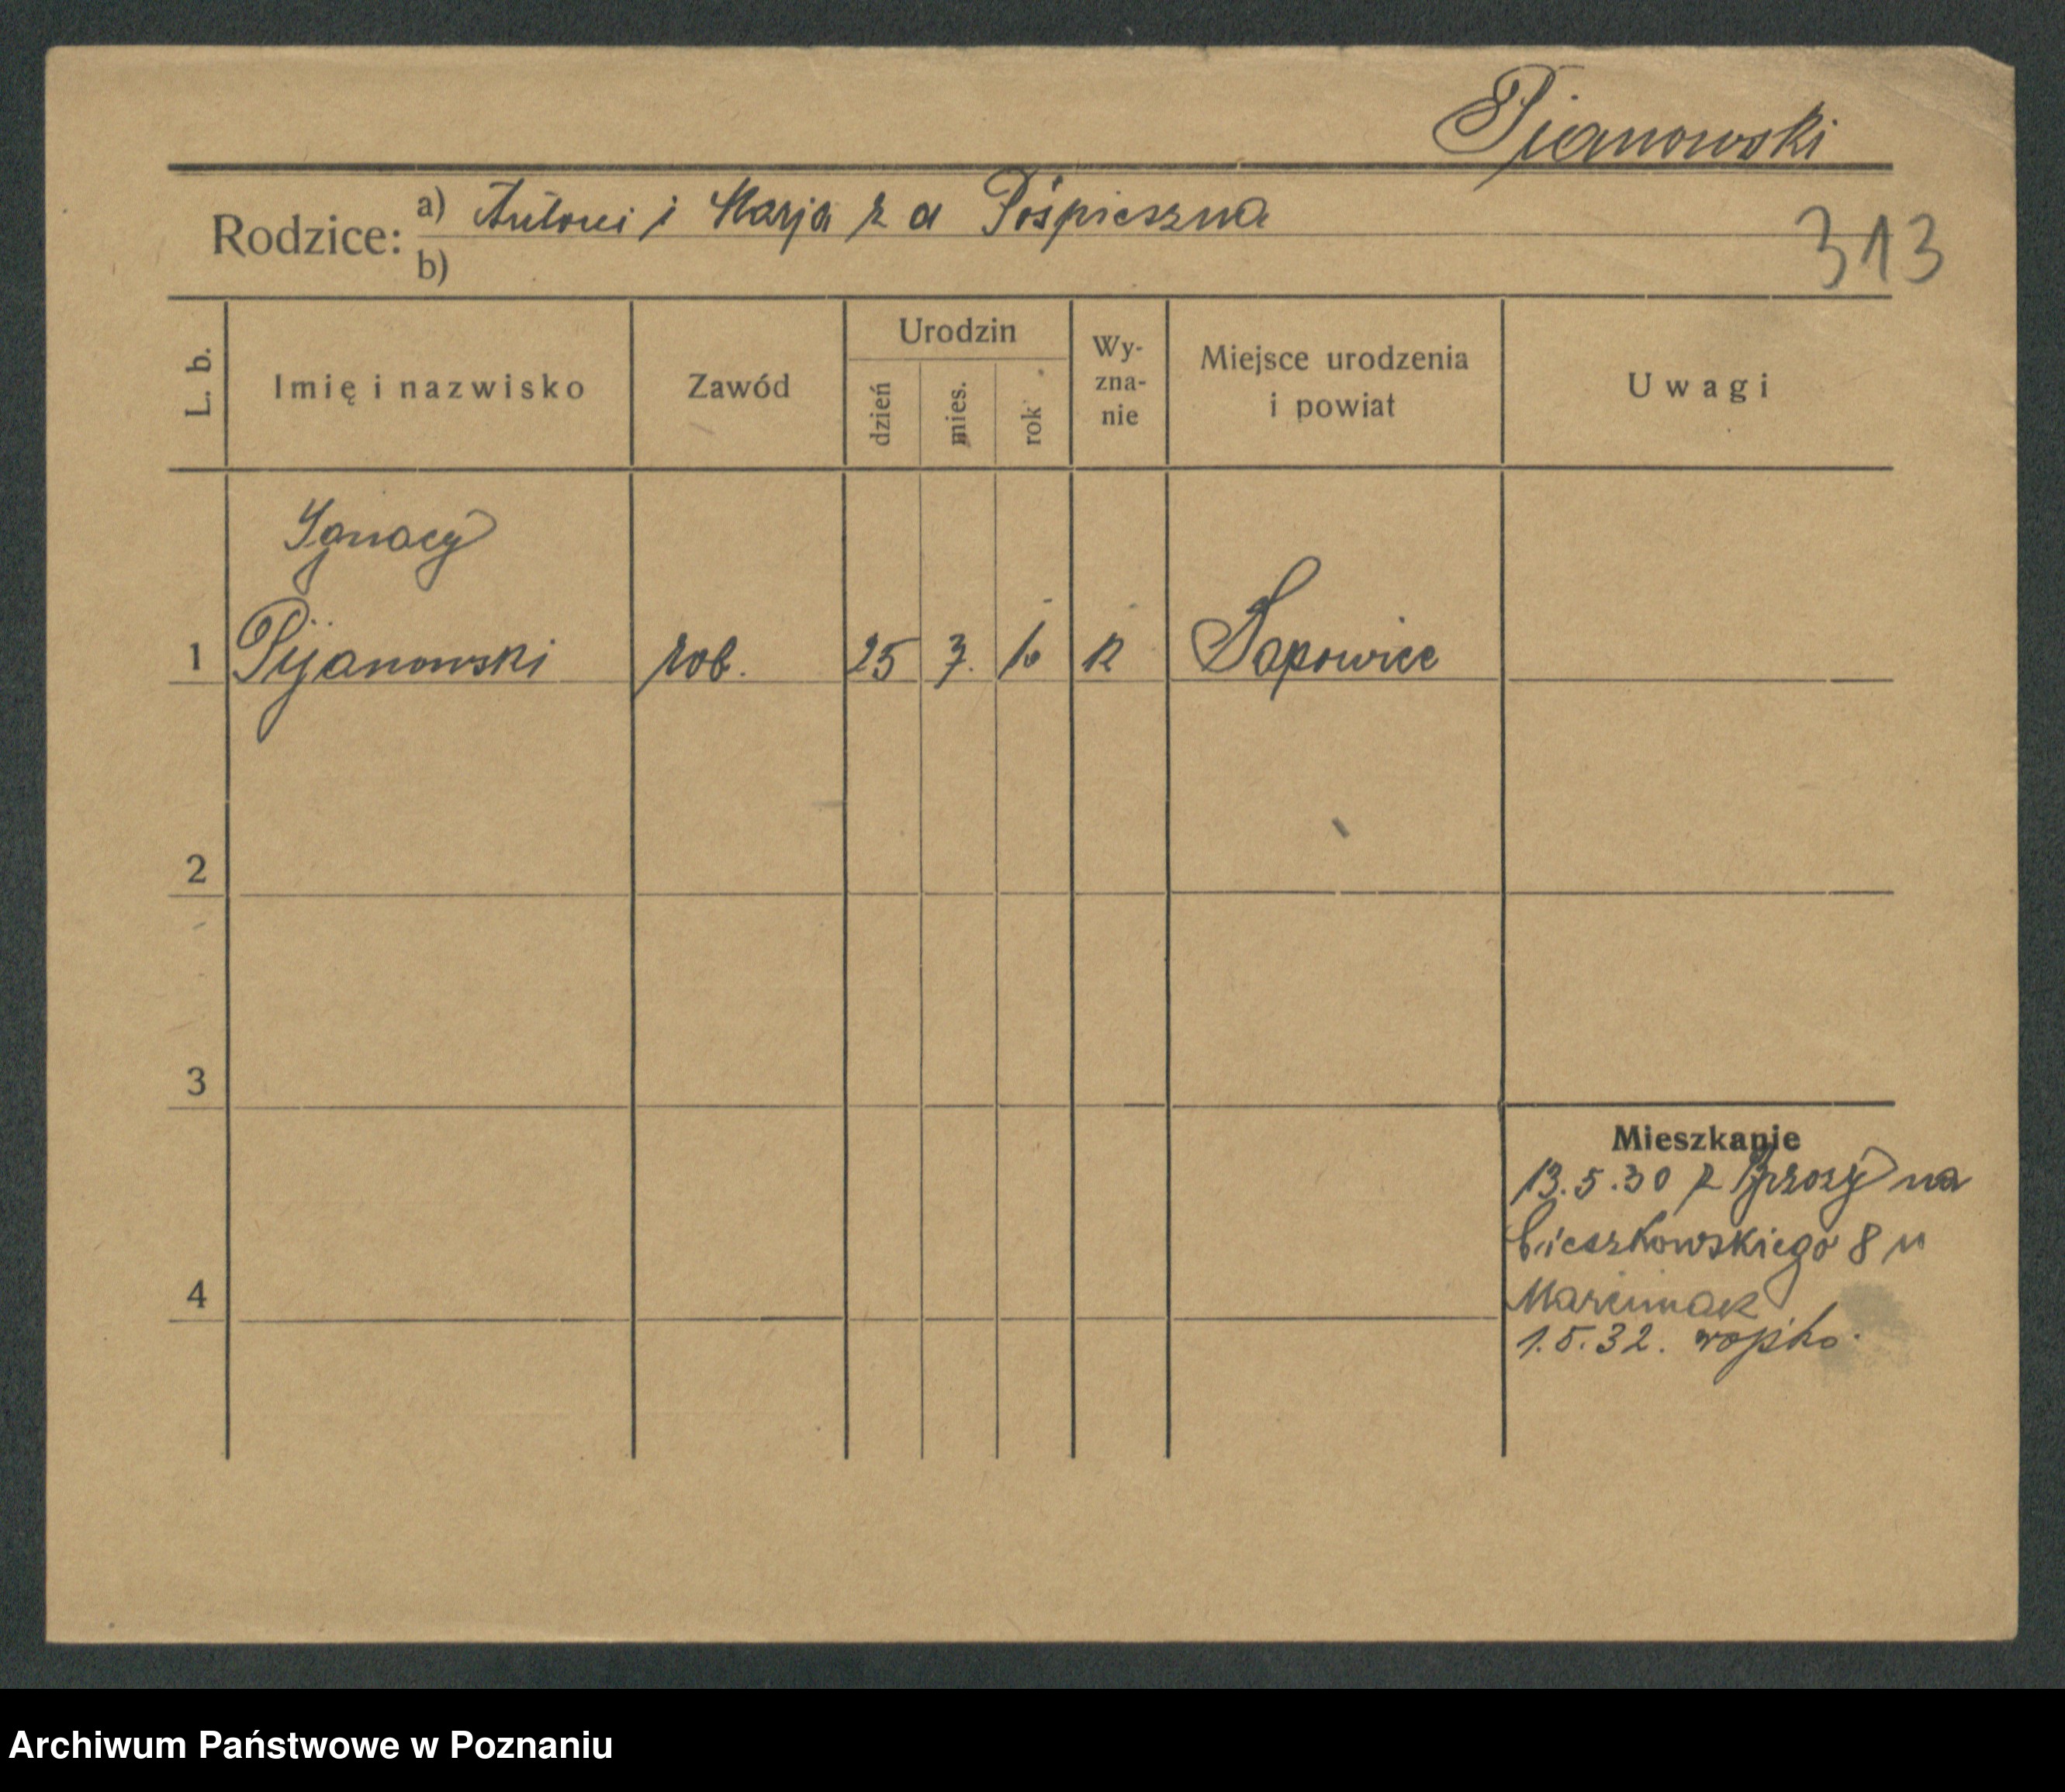 Pianowski
Rodzice: a) Antoni i Marja z d Pośpieszna
b)
313
L. b.
Imię i nazwisko
Zawód
Urodzin
dzień
mies.
rok
Wy-
zna-
nie
Miejsce urodzenia
i powiat
Uwagi
Ignacy
1 Pijanowski rob. 25 7. 10 k Sapowice
2
3
4
Mieszkanie
13.5.30 z na
Cieszkowskiego 8 u
Marciniak
1.5.32.
Archiwum Państwowe w Poznaniu